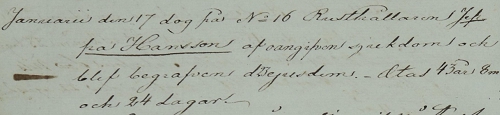 Januarii den 17 dog på No 16 Rusthållaren Jep
pa Hansson af oangifven sjukdom och
blef begrafven d: Ejusdem. Ætas 43 år 8 m
och 24 dagar.